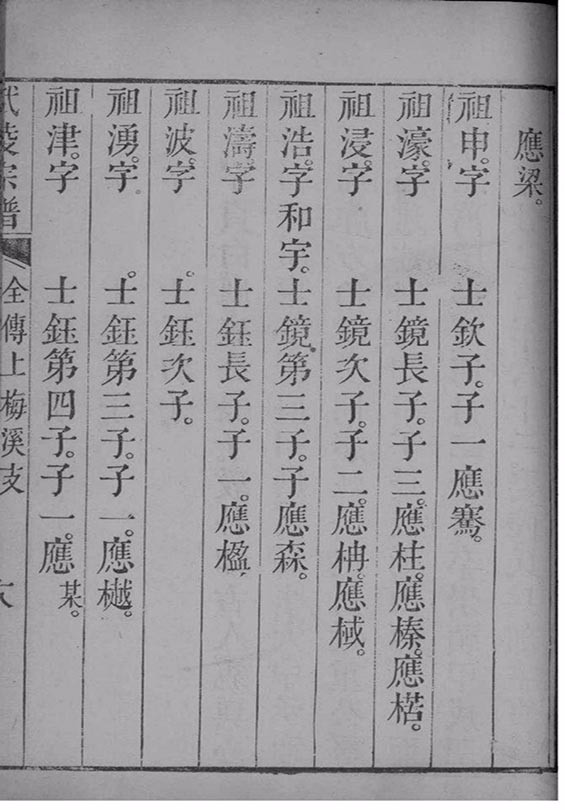 應梁。
祖申。字 士欽子。子一應騫。
祖濠。字 士鏡長子。子三。應柱。應榛。應楛。
祖浸。字 士鏡次子。子二。應柟。應棫。
祖浩。字和宇。士鏡第三子。子應森。
祖濤字 士鈺長子。子一。應楹。
祖波。字 士鈺次子。
祖湧。字 士鈺第三子。子一。應樾。
祖津。字 士鈺第四子。子一。應某。
武陵宗譜 全傳上 梅溪支